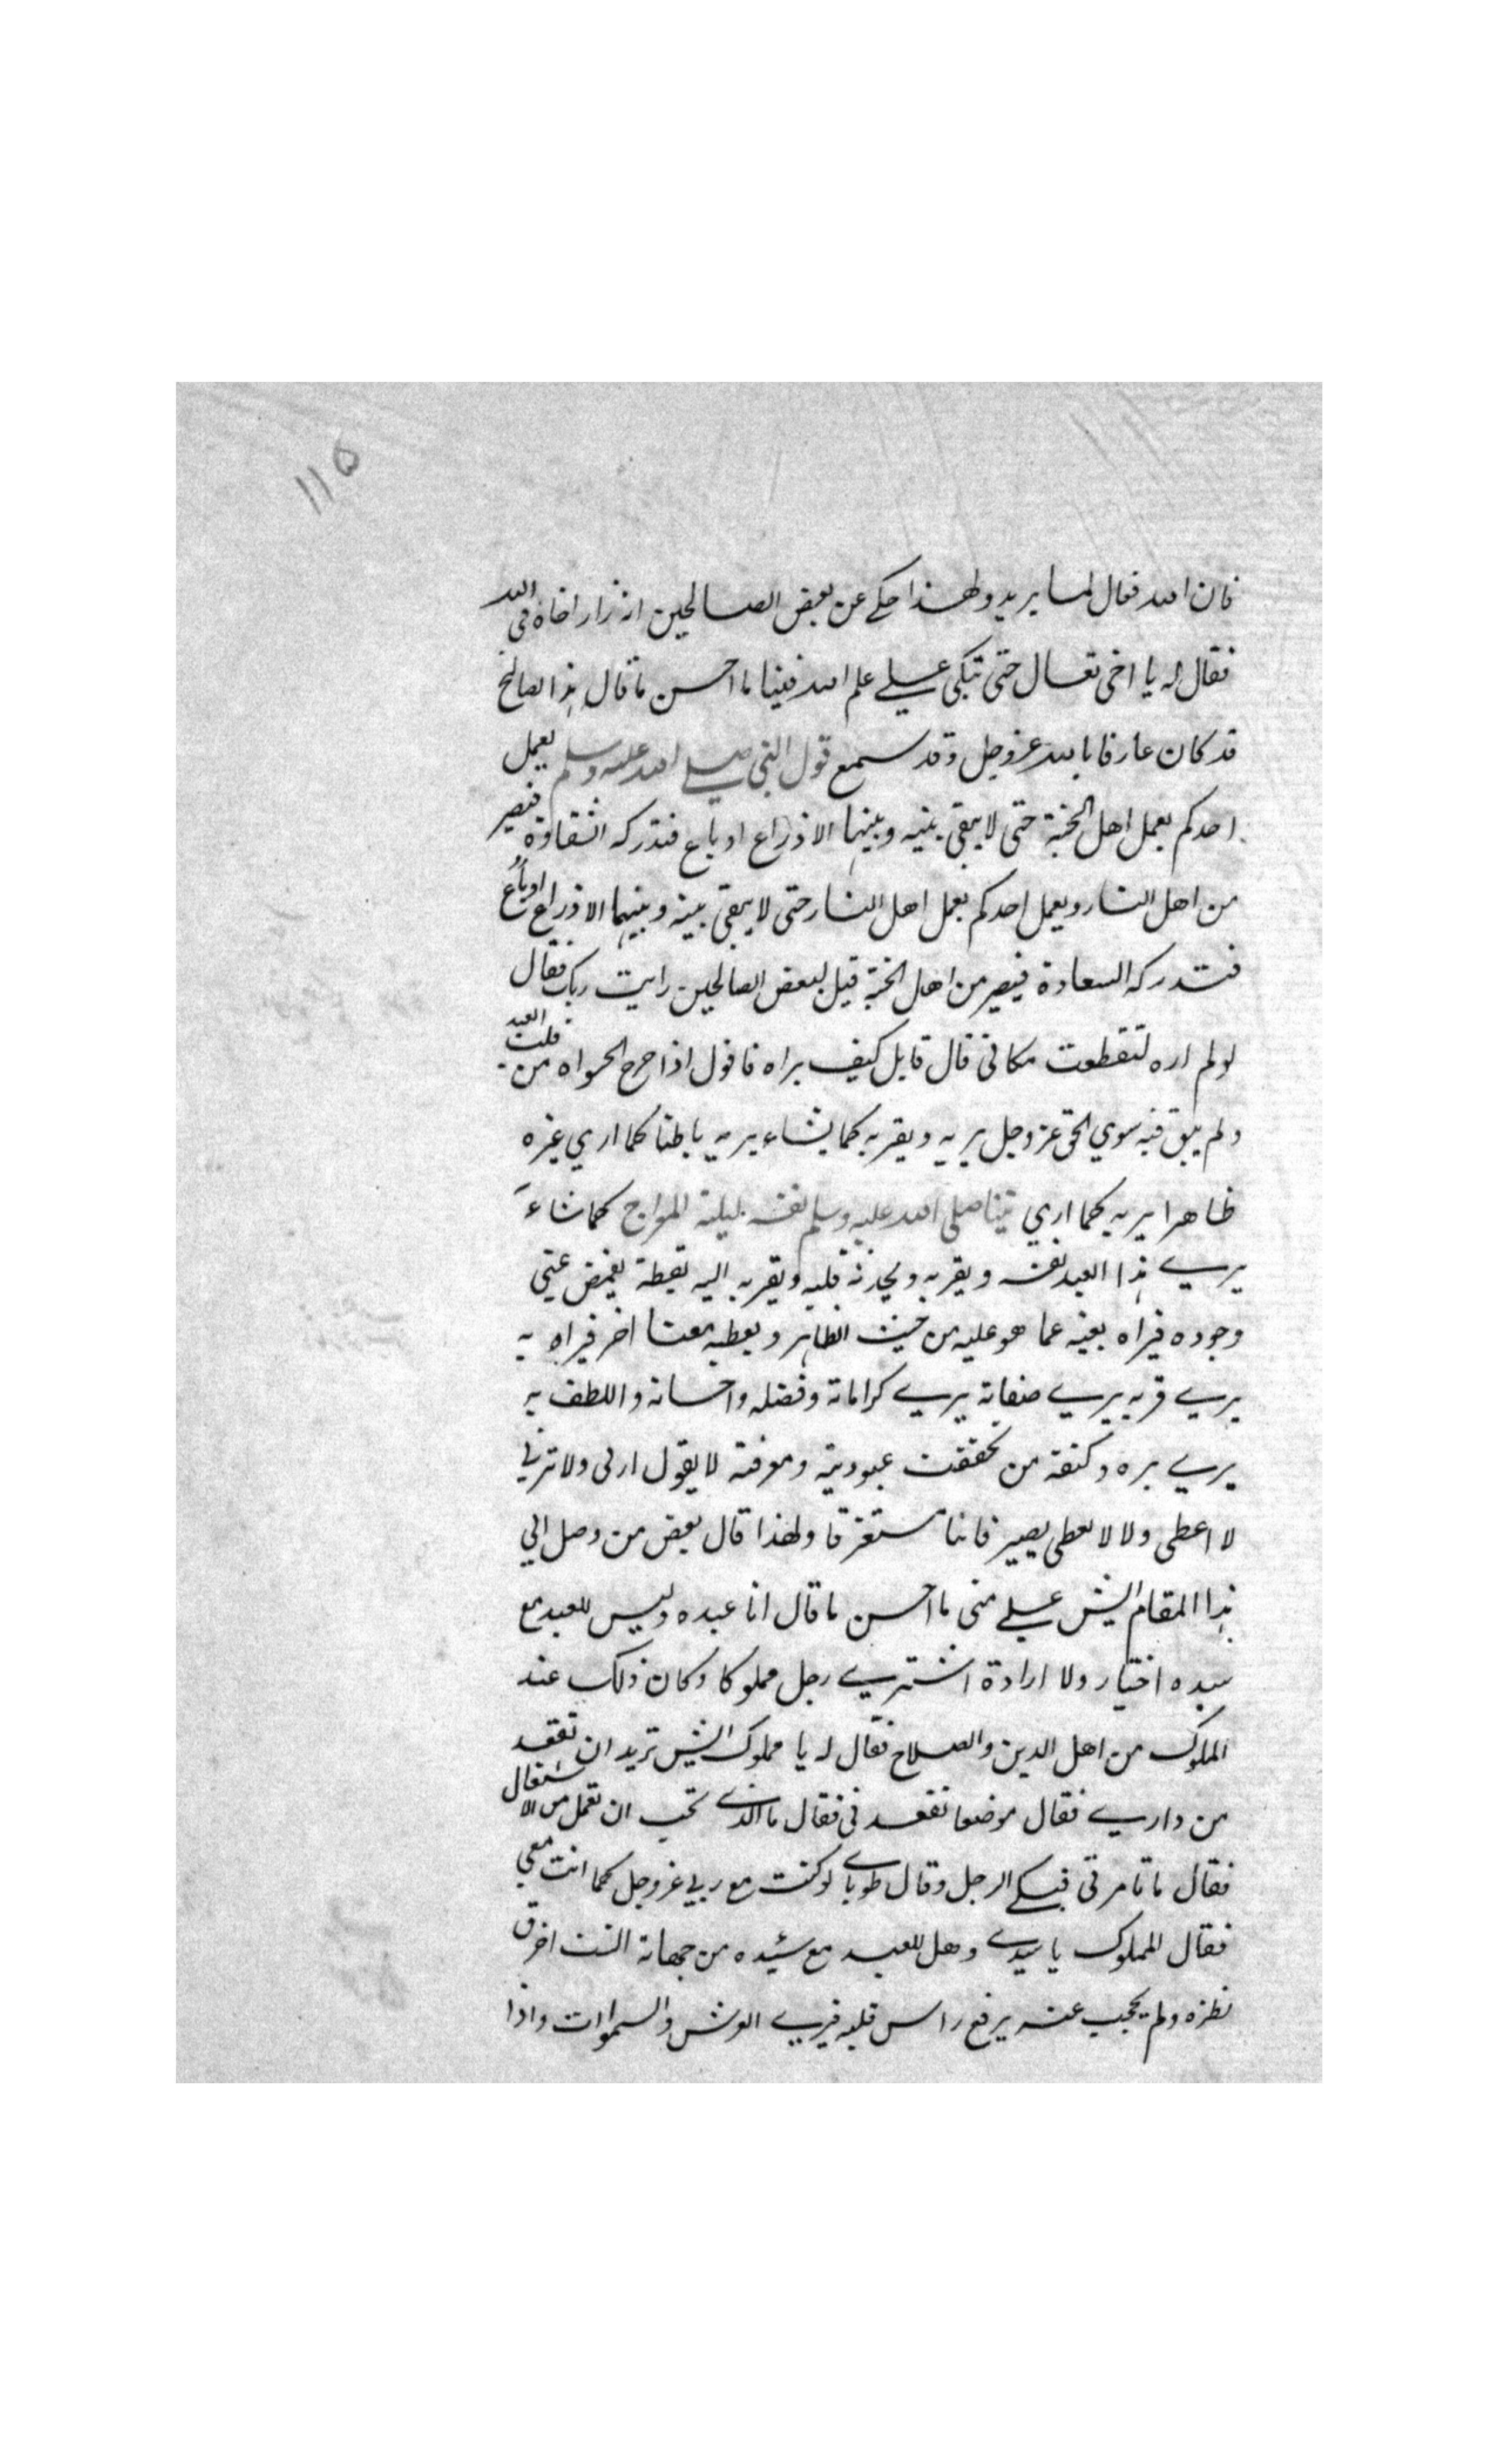 ١١٥
فان الله فعال لما يريد ولهذا حكي عن بعض الصالحين انه زار اخاه في الله
فقال له يا اخي تعال حتى نبكي علي علم الله فينا ما احسن ما قال هذا الصالح
قد كان عارفا بالله عز وجل وقد سمع قول النبي صلي الله عليه وسلم يعمل
احدكم بعمل اهل الجنة حتى لا يبقى بينه وبينها الا ذراع او باع فتدركه الشقاوة فيصير
من اهل النار ويعمل احدكم بعمل اهل النار حتى لا يبقى بينه وبينها الا ذراع او باع
فتدركه السعادة فيصير من اهل الجنة قيل لبعض الصالحين رايت ربك فقال
لو لم اره لتقطعت مكاني قال قايل كيف يراه فاقول اذا خرج الخواه من قلب العبد
ولم يبق فيه سوي الحق عز وجل يريه ويقربه كما يشاء يريه باطنا كما اري غيره
ظاهرا يريه كما اري نبينا صلى الله عليه وسلم نفسه ليلة المعراج كما شاء
يري هذا العبد نفسه ويقربه ويحدثه قلبه ويقربه اليه يقظة يغمض عيني
وجوده فيراه بعينه عما هو عليه من حيث الظاهر ويعطيه معنا اخر فيراه به
يري قربه يري صفاته يري كراماته وفضله واحسانه واللطف به
يري بره وكنفه من تحققت عبوديته ومعرفته لا يقول ارني ولا ترني
لا اعطى ولا لا تعطى يصير فانيا مستغرقا ولهذا قال بعض من وصل الي
هذا المقام ايش علي مني ما احسن ما قال انا عبده وليس للعبد مع
سيده اختيار ولا ارادة اشتري رجل مملوكا وكان ذلك عند
المملوك من اهل الدين والصلاح فقال له يا مملوك ايش تريد ان تقعد
من داري فقال موضعا تقعدني فقال ما الذي تحب ان تعمل من الاشغال
فقال ما تامرني فبكي الرجل وقال طوباي لو كنت مع ربي عز وجل كما انت معي
فقال المملوك يا سيدي وهل للعبد مع سيده من جهاته الست اخرق
نظره ولم يحجب عنه يرفع راس قلبه فيري العرش والسموات واذا